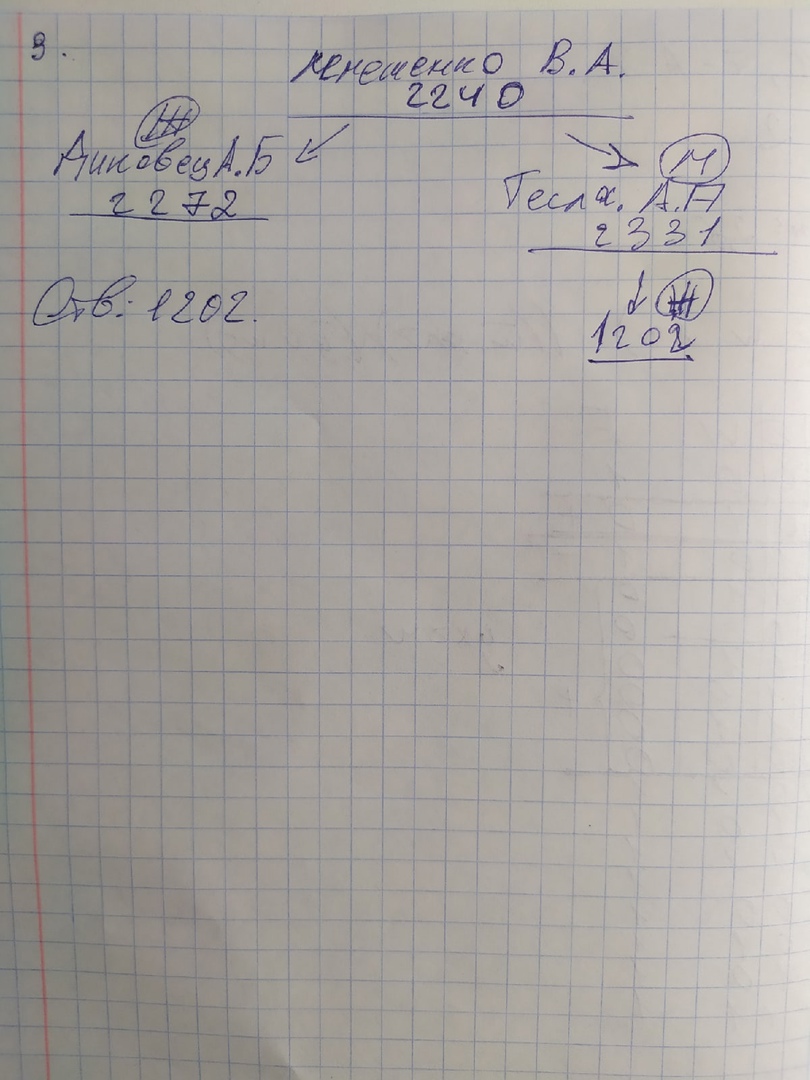 3.
Ленешенко В.А.
2240
Ж
Диковец А.Б
2272
М
Тесла. А.П
2331
Ж
1202
Отв: 1202.